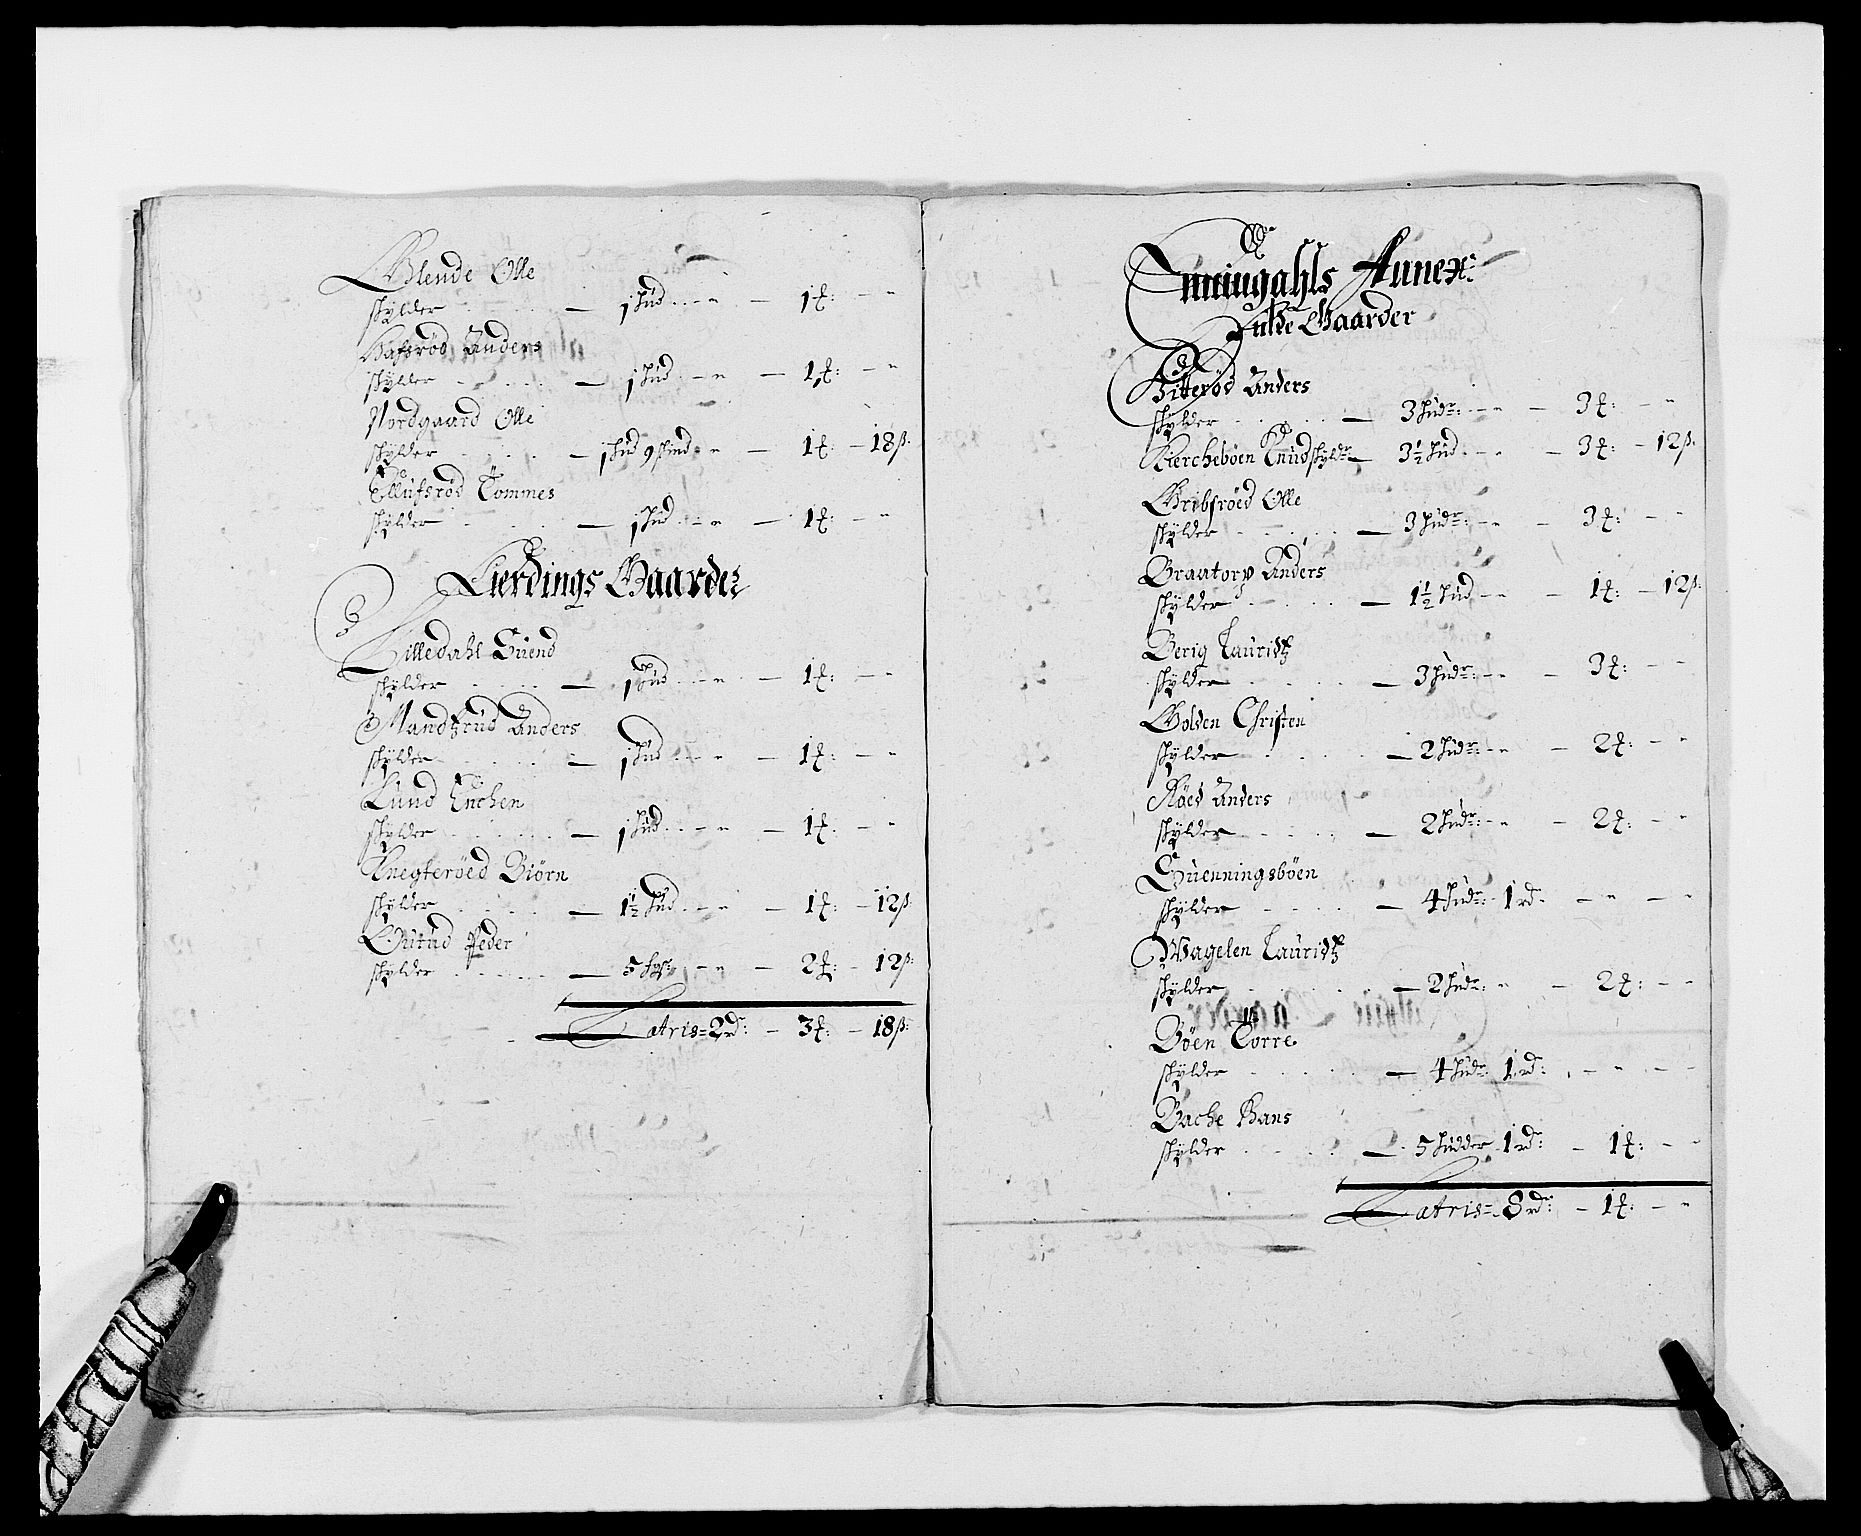 Glende Olle
skylder - 1 hud - - - 1 ƶ: - -
Hafsrød Anders
skylder - 1 hud - - - 1 ƶ: - -
Nordgaard Olle
skylder - 1 hud 9 skind - - 1 ƶ: - 18 ß:
Ellufsrød Tommes
skylder - 1 hud - - - 1 ƶ: - -
Fierdings Gaarder
Lilledahl Suend
skylder - 1 hud - - - 1 ƶ: - -
Mandtzrud Anders
skylder - 1 hud - - - 1 ƶ: - -
Lund Enchen
skylder - 1 hud - - - 1 ƶ: - -
Knegterøed Biørn
skylder - 1½ hud - - - 1 ƶ: - 12 ß:
Peder
skylder - 5 - - 2 ƶ: - 12 ß:
Latris = 2 rdr: - 3 ƶ: - 18 ß:
Enningdahls Annex:
Fulde Gaarder
Hitterød Anders
skylder - 3 hudr: - - 3 ƶ: - -
Kierchebøen Knud skyldr - 3½ hud - - - 3 ƶ: - 12 ß:
Gribsrøed Olle
skylder - 3 hudr: - - 3 ƶ: - -
Braatorp Anders
skylder - 1½ hud - - - 1 ƶ: - 12 ß:
Berig Lauridtz
skylder - 3 hudr: - - 3 ƶ: - -
Holden Christen
skylder - 2 hudr: - - 2 ƶ: - -
Røed Anders
skylder - 2 hudr: - - 2 ƶ: - -
Suenningsbøen
skylder - 4 hudr: 1 rdr - - - -
Wagelen Lauridtz
skylder - 2 hudr: - 2 ƶ: - -
Bøen Torre
skylder - 4 hudr: 1 rdr: - - - -
Bache Hans
skylder - 5 hudder 1 rdr: - 1 ƶ: - -
Latris = 8 rdr: - 1 ƶ: - -